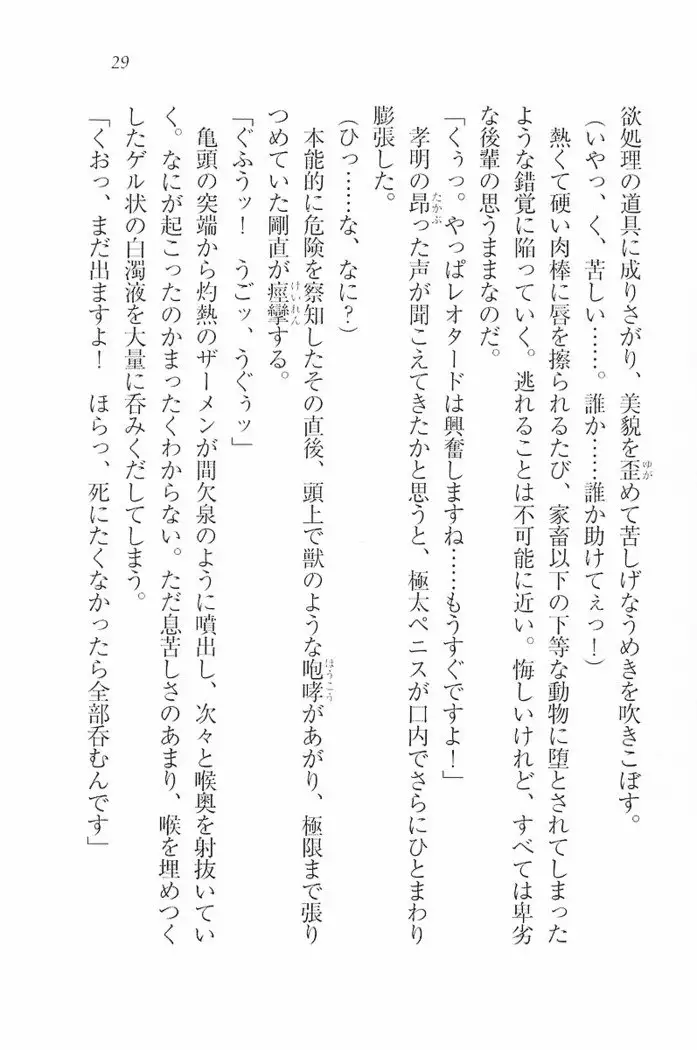 29
欲処理の道具に成りさがり、美貌を歪めて苦しげなうめきを吹きこぼす。
（いやっ、く、苦しい……。誰か……誰か助けてぇっ！）
熱くて硬い肉棒に唇を擦られるたび、家畜以下の下等な動物に堕とされてしまった
ような錯覚に陥っていく。逃れることは不可能に近い。悔しいけれど、すべては卑劣
な後輩の思うままなのだ。
「くぅっ。やっぱレオタードは興奮しますね……もうすぐですよ！」
孝明の昂った声が聞こえてきたかと思うと、極太ペニスが口内でさらにひとまわり
膨張した。
（ひっ……な、なに？）
本能的に危険を察知したその直後、頭上で獣のような咆哮があがり、極限まで張り
つめていた剛直が痙攣する。
「ぐふうッ！　うごッ、うぐぅッ」
亀頭の突端から灼熱のザーメンが間欠泉のように噴出し、次々と喉奥を射抜いてい
く。なにが起こったのかまったくわからない。ただ息苦しさのあまり、喉を埋めつく
したゲル状の白濁液を大量に呑みくだしてしまう。
「くおっ、まだ出ますよ！　ほらっ、死にたくなかったら全部呑むんです」